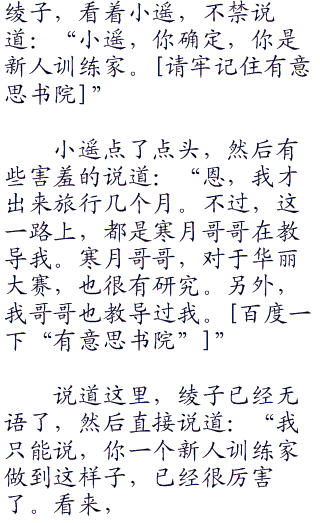 绫子，看着小遥，不禁说
道：“小遥，你确定，你是
新人训练家。[请牢记住有意
思书院]”
小遥点了点头，然后有
些害羞的说道：“恩，我才
出来旅行几个月。不过，这
一路上，都是寒月哥哥在教
导我。寒月哥哥，对于华丽
大赛，也很有研究。另外，
我哥哥也教导过我。[百度一
下“有意思书院”]”
说道这里，绫子已经无
语了，然后直接说道：“我
只能说，你一个新人训练家
做到这样子，已经很厉害
了。看来，